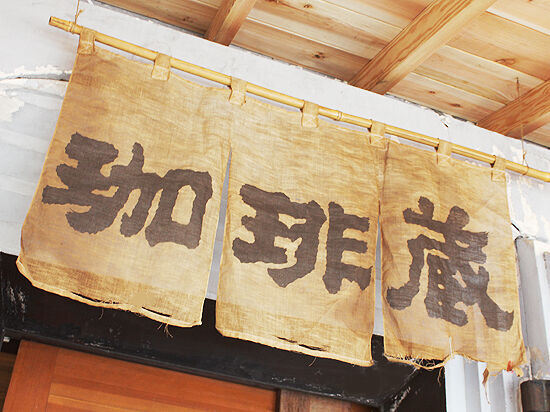 珈琲蔵